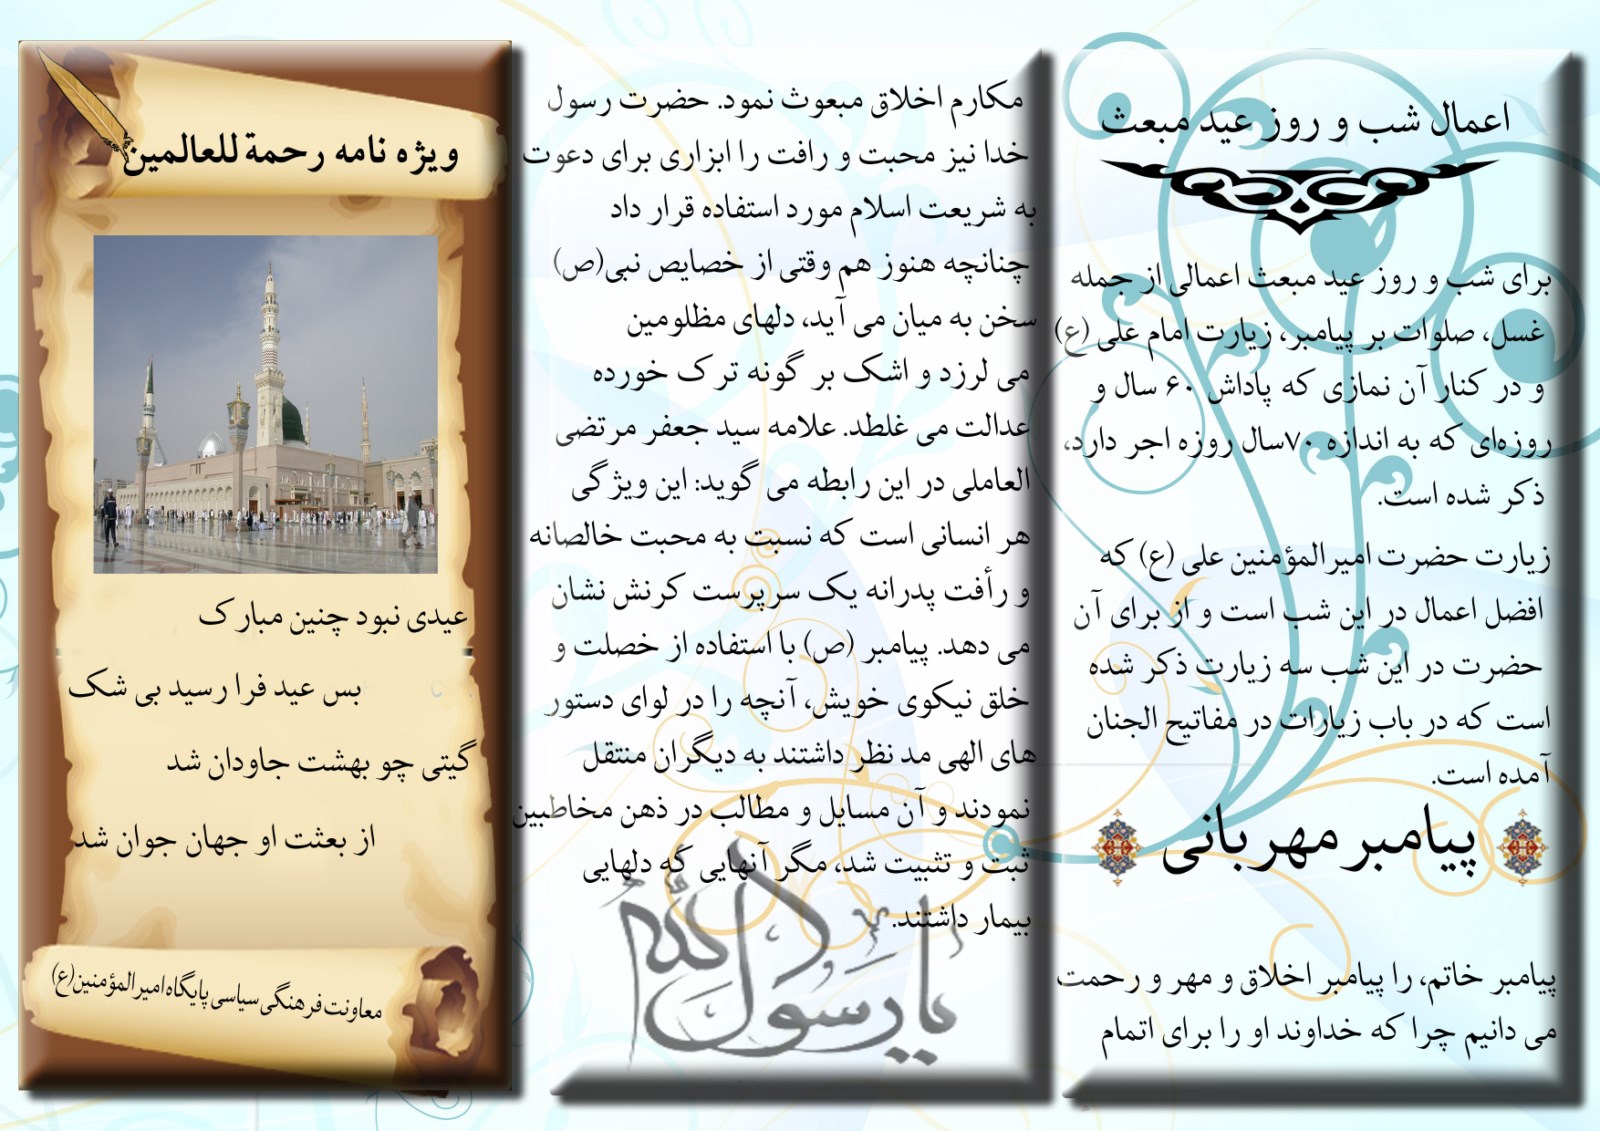 اعمال شب و روز عید مبعث
برای شب و روز عید مبعث اعمالی از جمله
غسل، صلوات بر پیامبر، زیارت امام علی (ع)
و در کنار آن نمازی که پاداش ۶۰ سال و
روزه‌ای که به اندازه ۷۰سال روزه اجر دارد،
ذکر شده است.
زیارت حضرت امیرالمؤمنین علی (ع) که
افضل اعمال در این شب است و از برای آن
حضرت در این شب سه زیارت ذکر شده
است که در باب زیارات در مفاتیح الجنان
آمده است.
پیامبر مهربانی
پیامبر خاتم، را پیامبر اخلاق و مهر و رحمت
می دانیم چرا که خداوند او را برای اتمام
مکارم اخلاق مبعوث نمود. حضرت رسول
خدا نیز محبت و رافت را ابزاری برای دعوت
به شریعت اسلام مورد استفاده قرار داد
چنانچه هنوز هم وقتی از خصایص نبی(ص)
سخن به میان می آید، دلهای مظلومین
می لرزد و اشک بر گونه ترک خورده
عدالت می غلطد. علامه سید جعفر مرتضی
العاملی در این رابطه می گوید: این ویژگی
هر انسانی است که نسبت به محبت خالصانه
و رأفت پدرانه یک سرپرست کرنش نشان
می دهد. پیامبر (ص) با استفاده از خصلت و
خلق نیکوی خویش، آنچه را در لوای دستور
های الهی مد نظر داشتند به دیگران منتقل
نمودند و آن مسایل و مطالب در ذهن مخاطبین
ثبت و تثبیت شد، مگر آنهایی که دلهایی
بیمار داشتند.
یا رسول الله
ویژه نامه رحمة للعالمین
عیدی نبود چنین مبارک
بس عید فرا رسید بی شک
گیتی چو بهشت جاودان شد
از بعثت او جهان جوان شد
معاونت فرهنگی سیاسی پایگاه امیرالمؤمنین(ع)